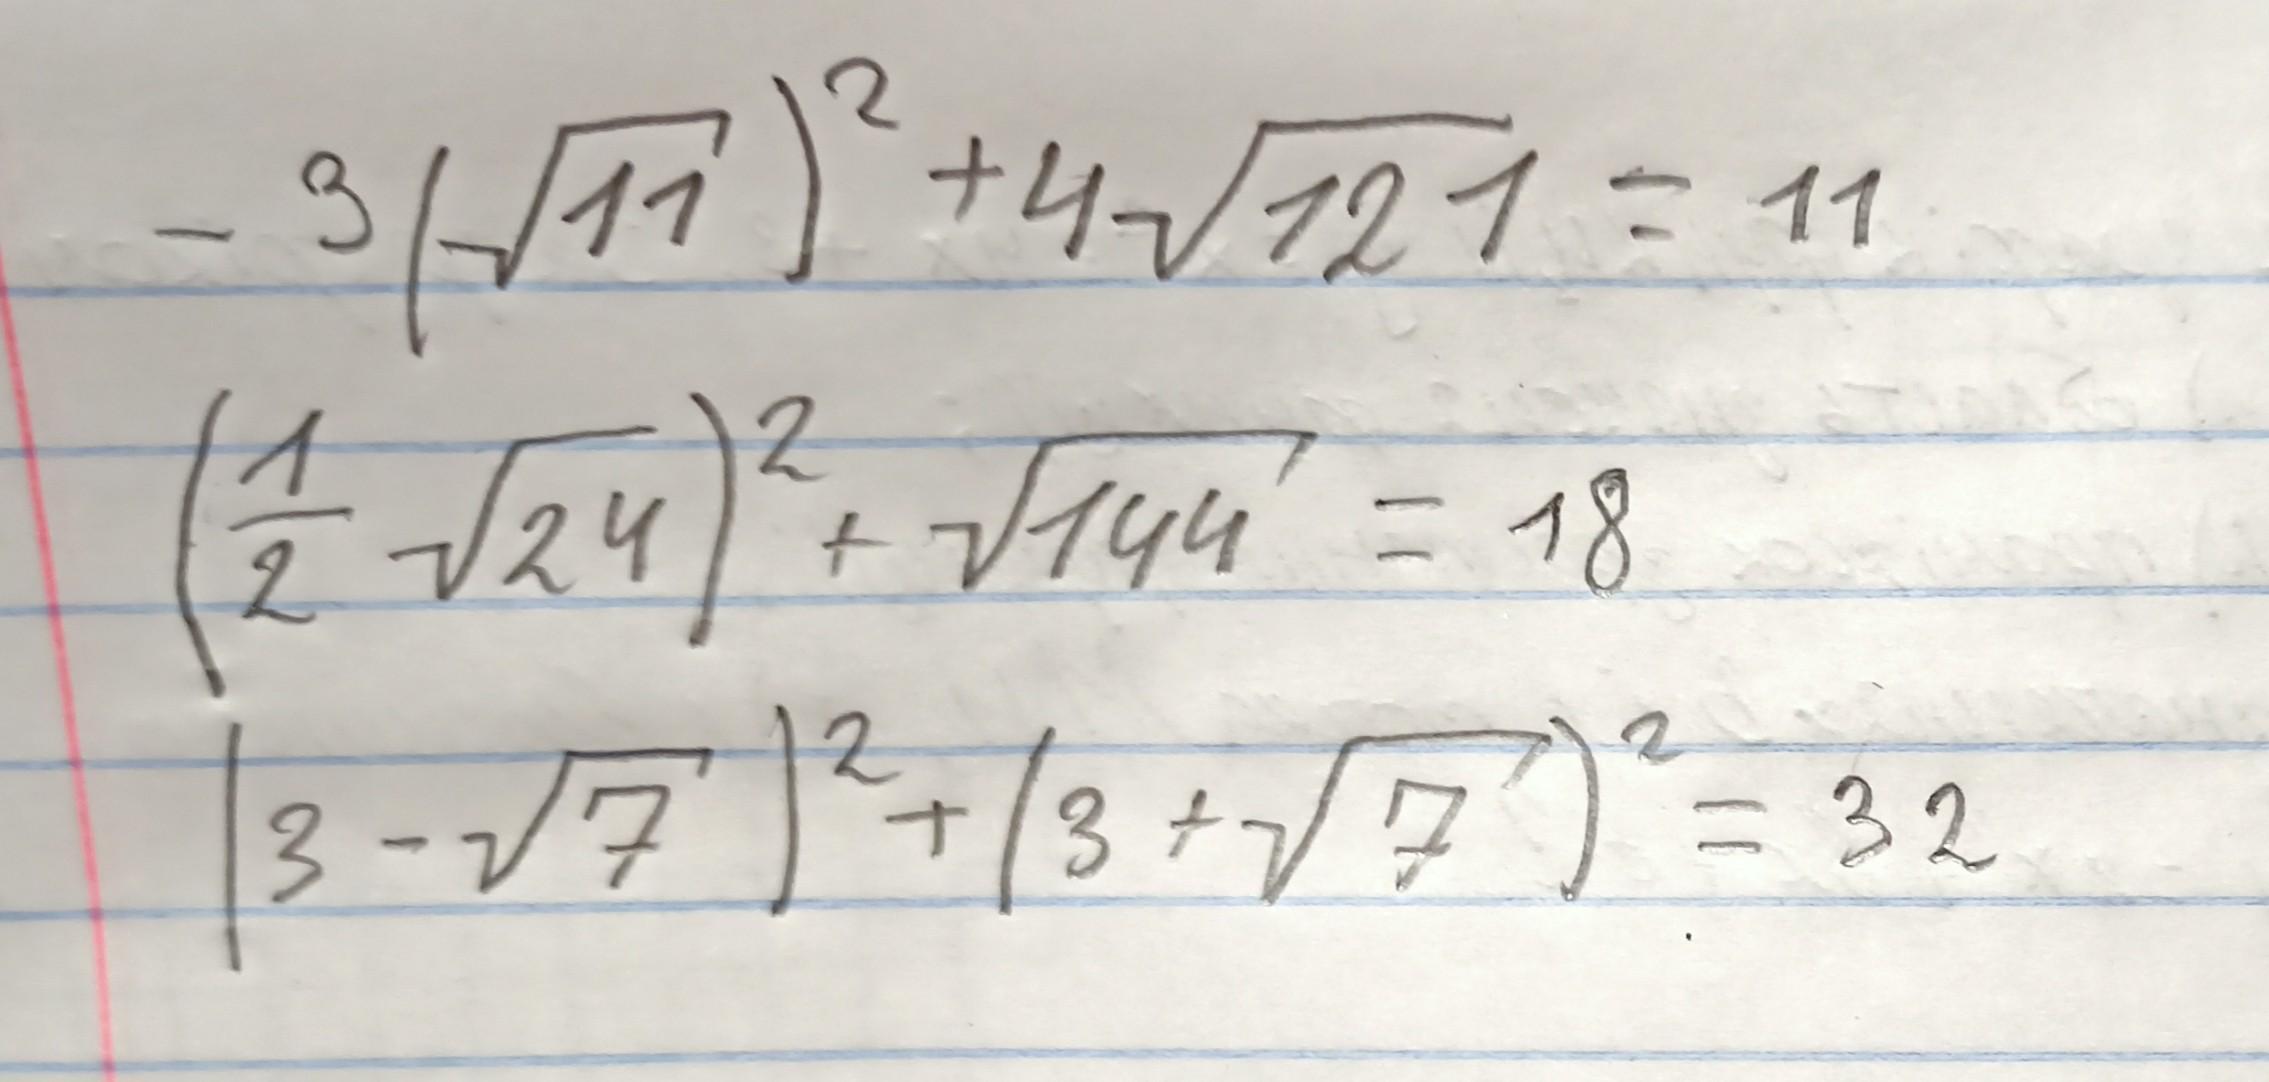 -3(√11)² + 4√121 = 11
(1/2 √24)² + √144 = 18
(3 - √7)² + (3 + √7)² = 32